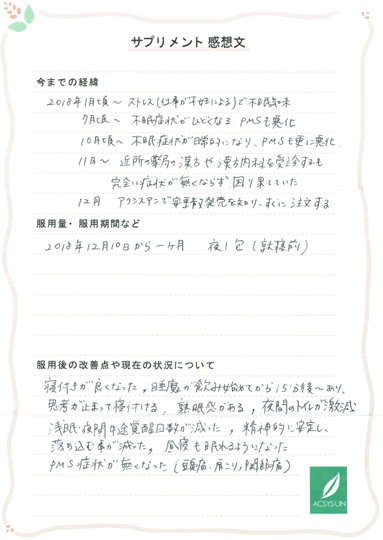 サプリメント 感想文
今までの経緯
2018年1月頃～ ストレス(仕事が不妊による)で不眠気味
7月頃～ 不眠症状がひどくなる PMSも悪化
10月頃～ 不眠症状が日常的になり、PMSも更に悪化.
11月～ 近所の薬局の漢方や漢方内科を受診するも
完全に症状が無くならず 困り果てていた
12月 アクシスアンで安 発売を知り、すぐに注文する
服用量・服用期間など
2018年12月10日から一ヶ月 夜1包 (就寝前)
服用後の改善点や現在の状況について
寝付きが良くなった。睡魔が飲み始めてから15分後～あり、
思考が止まって寝付ける, 熟眠感がある, 夜間のトイレが激減
浅眠・夜間中途覚醒回数が減った, 精神的に安定し、
落ち込む事が減った, 昼寝も眠れるようになった
PMS症状が無くなった (頭痛、肩こり、関節痛)
ACSYSUN